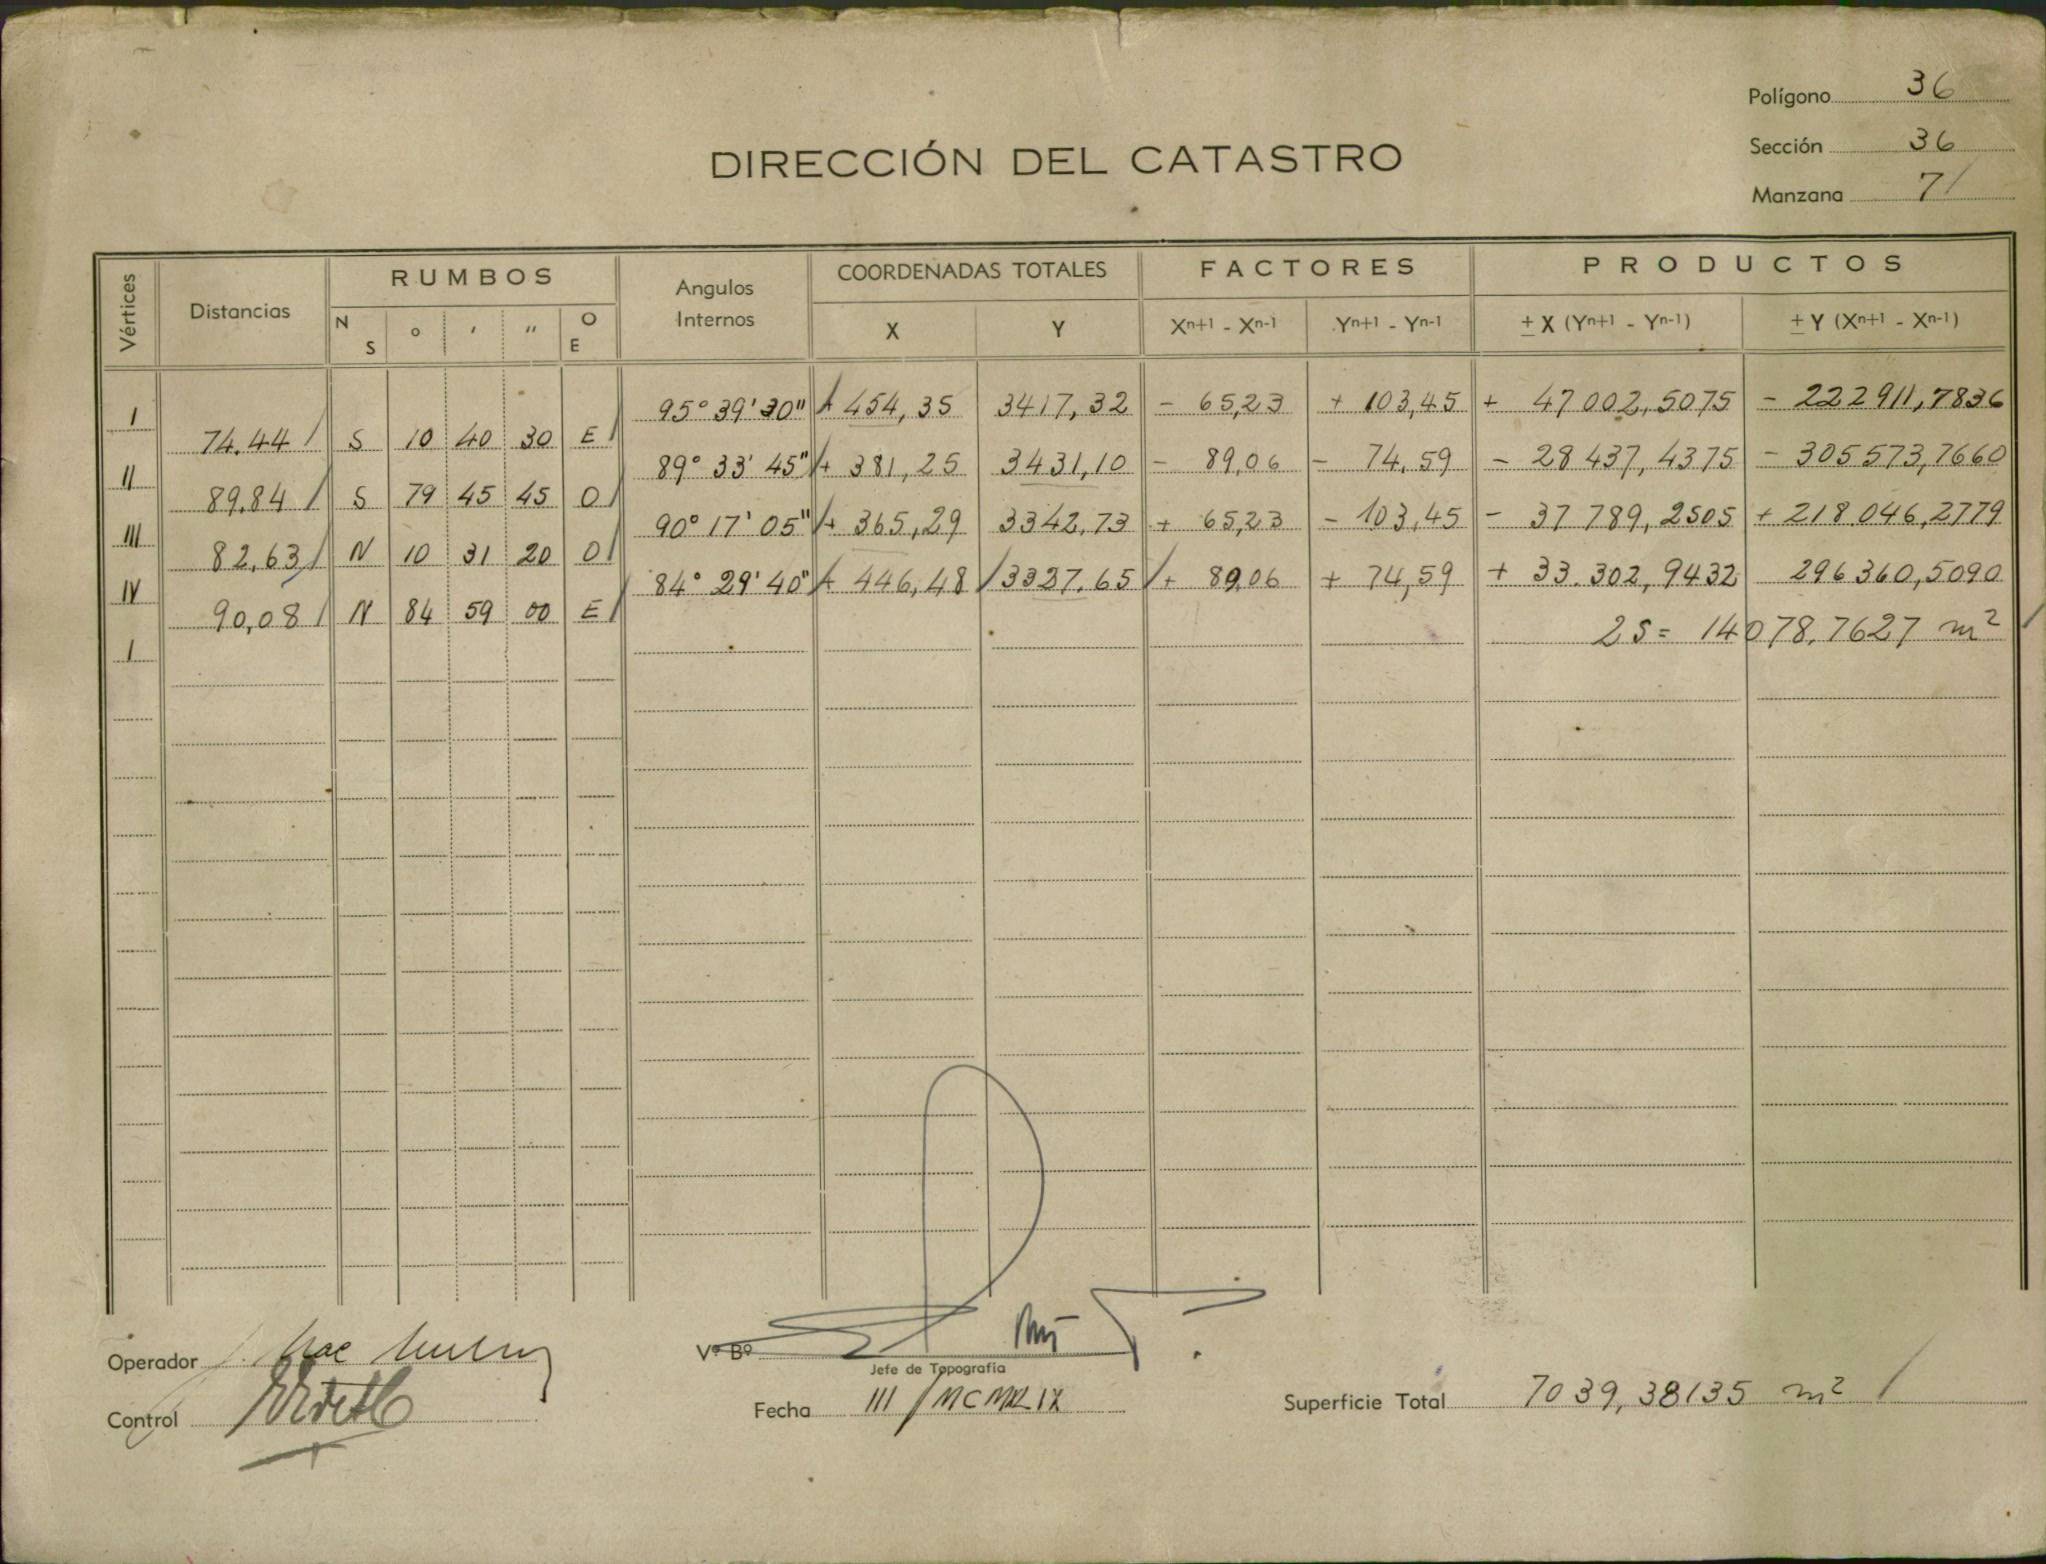 Polígono 36
Sección 36
Manzana 7
DIRECCIÓN DEL CATASTRO
Vértices Distancias RUMBOS Angulos Internos COORDENADAS TOTALES FACTORES PRODUCTOS
N S ° ' " O E X Y Xn+1 - Xn-1 Yn+1 - Yn-1 ± X (Yn+1 - Yn-1) ± Y (Xn+1 - Xn-1)
I 95° 39' 30" + 454,35 3417,32 - 65,23 + 103,45 + 47002,5075 - 222911,7836
74.44 S 10 40 30 E
II 89° 33' 45" + 381,25 3431,10 - 89,06 - 74,59 - 28437,4375 - 305573,7660
89.84 S 79 45 45 O
III 90° 17' 05" + 365,29 3342,73 + 65,23 - 103,45 - 37789,2505 + 218.046,2779
82,63 N 10 31 20 O
IV 84° 29' 40" + 446,48 3327,65 + 89,06 + 74,59 + 33.302,9432 296360,5090
90,08 N 84 59 00 E
2S= 14078,7627 m²
I
Operador Mac
Vº Bº
Jefe de Topografía
Control
Fecha III / MCMXLIX
Superficie Total 7039,38135 m²